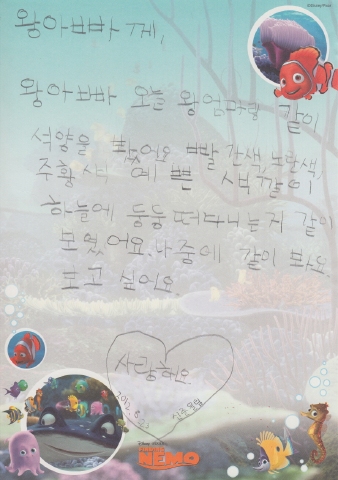 왕아빠 께,
왕아빠 오늘 왕엄마랑 같이
석양을 봤어요 빨간색, 노란색,
주황색 예쁜 색깔이
하늘에 둥둥 떠다니는지 같이
모였어요. 나중에 같이 봐요.
보고 싶어요.
사랑해요.
NEMO